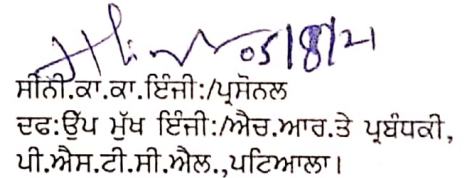 05/8/21
ਸੀਨੀ.ਕਾ.ਕਾ.ਇੰਜੀ:/ਪ੍ਰਸੋਨਲ
ਦਫ:ਉੱਪ ਮੁੱਖ ਇੰਜੀ:/ਐਚ.ਆਰ.ਤੇ ਪ੍ਰਬੰਧਕੀ,
ਪੀ.ਐਸ.ਟੀ.ਸੀ.ਐਲ.,ਪਟਿਆਲਾ।